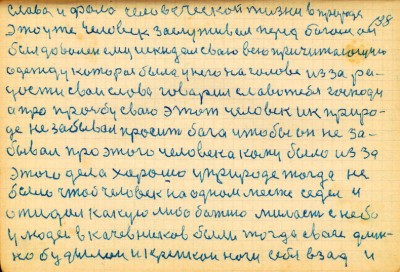 слава и фала человеческой жизни в природе
138
этоуже человек заслуживал перед богам он
был доволен ему и кидал сваю всю причитающую
одежду которая была у него на голове из за ра-
дости сваи слова говарил слава тебя господу
а про прозбу сваю этот человек и к приро-
де не забывал просить бага чтобы он не за-
бывал про этого человека кому было из за
этого дела харошо у природе тогда не
было чтоб человек на одном месте седел и
ожидал какую либо божию миласть с неба
у людей в качевниках были тогда сваее
но будилам и крепкаи ноги себя взад и